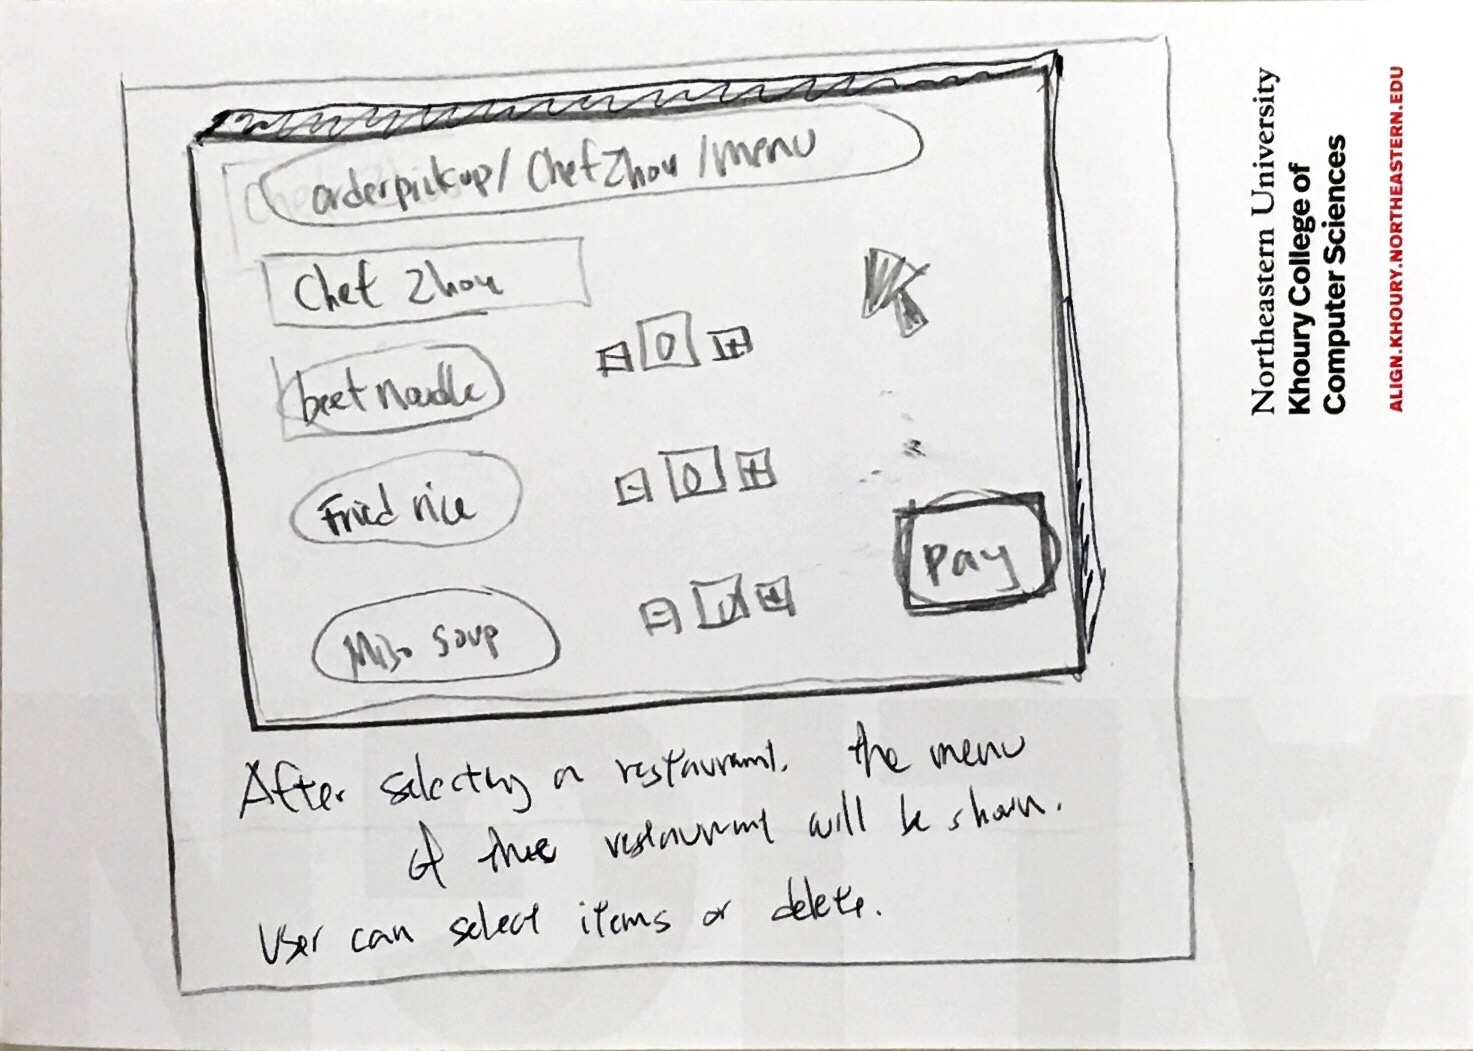 orderpickup/ Chef Zhou /menu
Chef Zhou
beef noodle
- 0 +
Fried rice
- 0 +
Miso soup
- +
Pay
After selecting a restaurant. the menu
of the restaurant will be shown.
User can select items or delete.
Northeastern University
Khoury College of
Computer Sciences
ALIGN.KHOURY.NORTHEASTERN.EDU
ALIGN